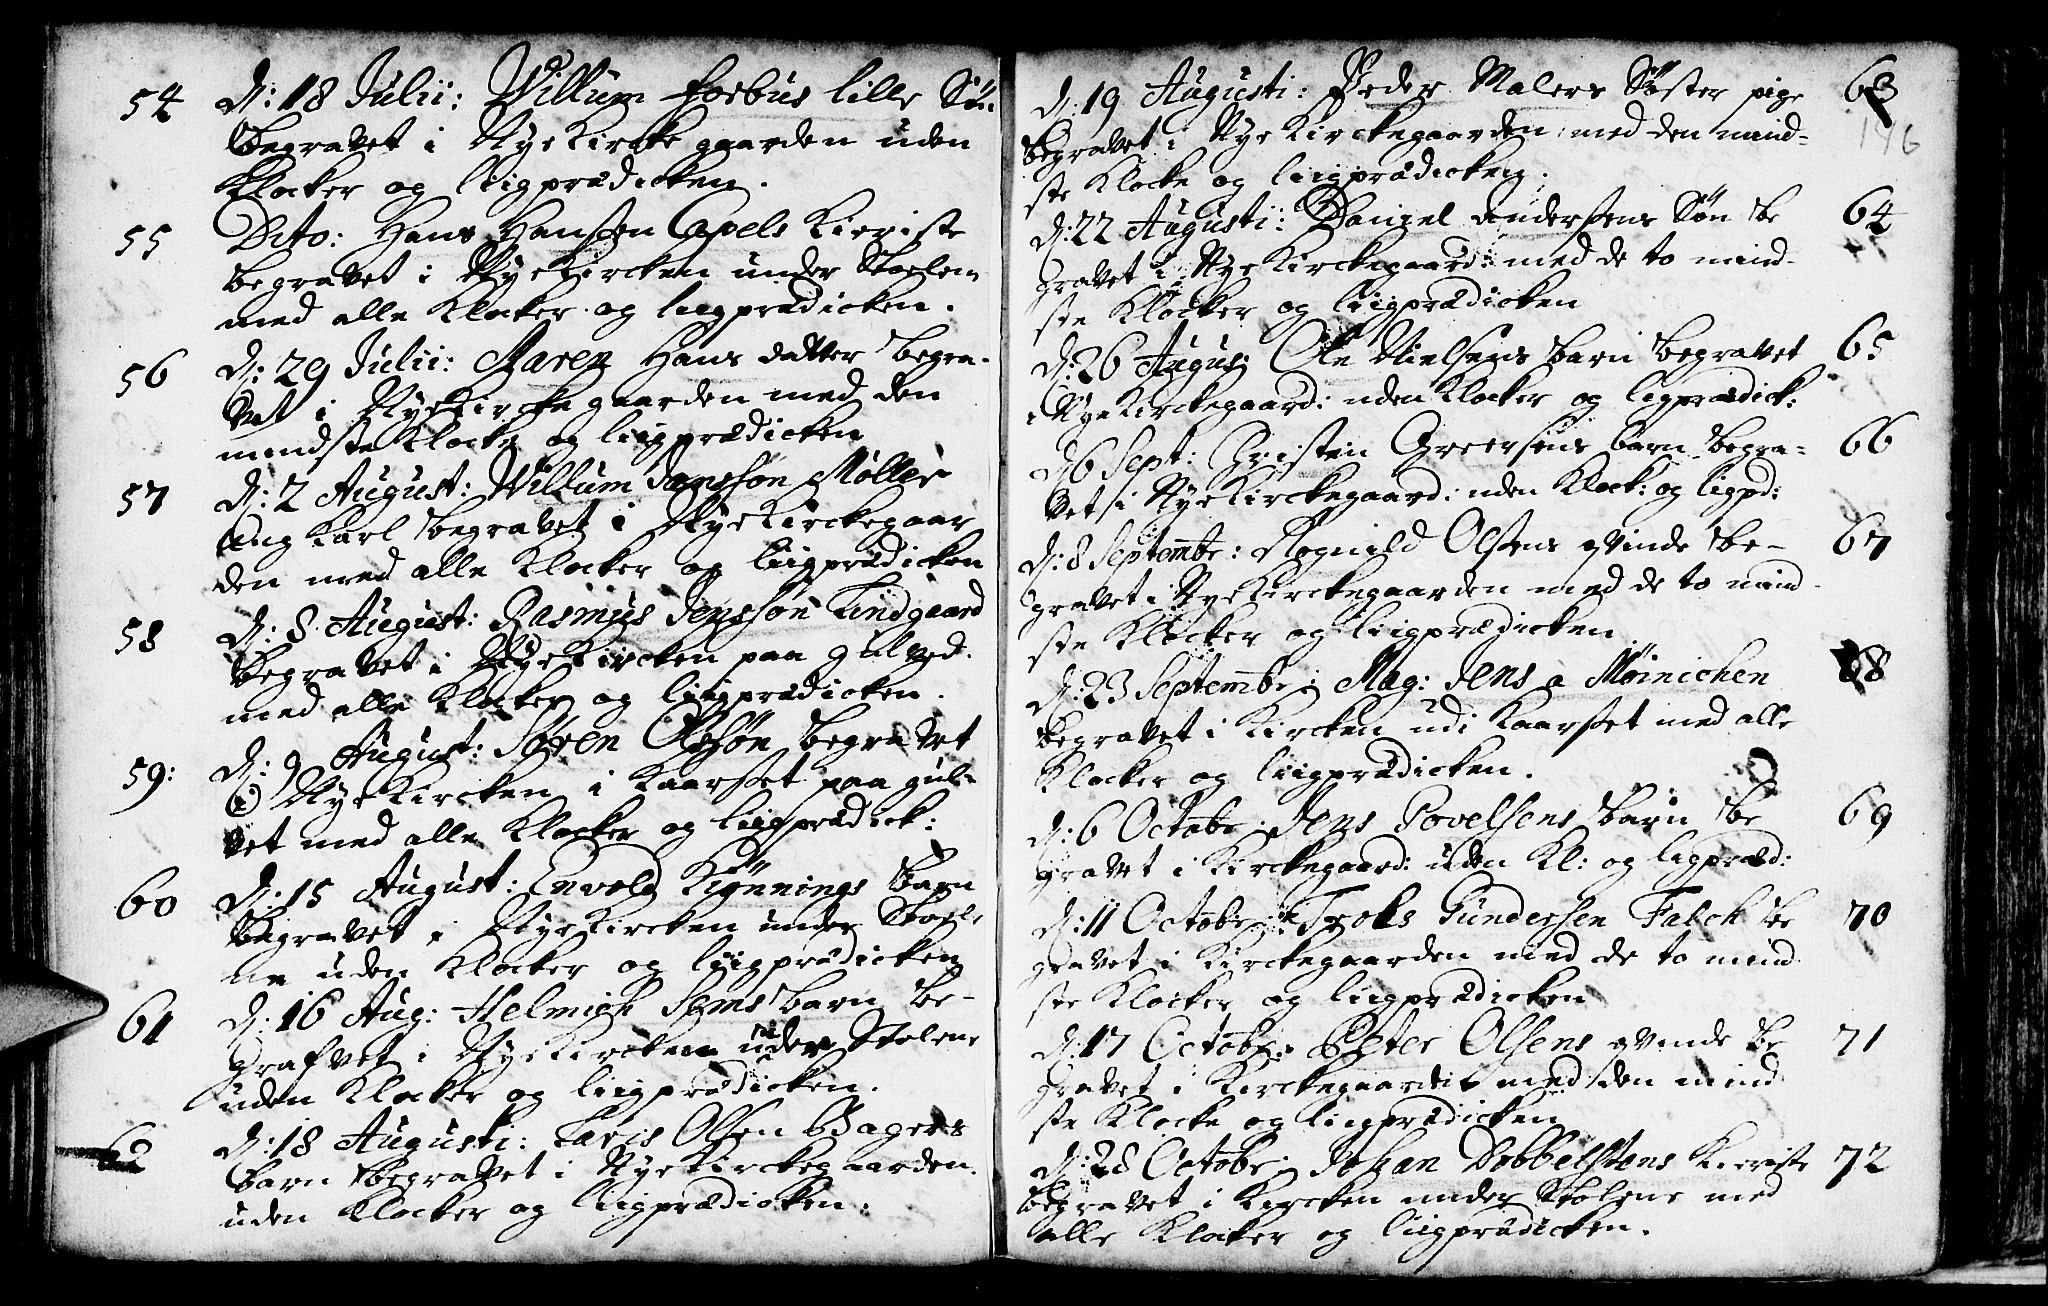 54 d: 18 Julii: Willum forbus lille Søn
begravet i Nye Kircke gaarden uden
Klocker og liigprædicken.
55 Dito: Hans Hanssøn Capels Kieriste
begravet i Nye Kircken under Stoelen
med alle Klocker og liigprædicken.
56 d: 29 Julii: Maren Hans datter begra-
vet i Nye Kircke gaarden med den
mindste Klocke og liigprædicken
57 d: 2 August: Willum Jonssøn Møller
ung Karl begravet i Nye Kirckegaar
den med alle Klocker og liigprædicken
58 d: 8 August: Rasmus Jenssøn Lindgaard
begravet i Nye Kircken paa gulved.
med alle Klocker og liigprædicken.
59: d: 9 August: Søren Olssøn begravet
i Nye Kircken i Kaarsset paa gul-
vet med alle Klocker og liigprædick:
60 d: 15 August: Envold Kiønnings barn
begravet i Nye Kircken under Stoele
ne uden Klocker og liigprædicken
61 d: 16 Aug: Helmich Jems barn be-
grafvet i Nye Kircken under Stolene
uden Klocker og liigprædicken.
62 d: 18 Augusti: Laris Olsen Bagers
barn begravet i Nye Kirckegaarden.
uden Klocker og liigprædicken.
d: 19 Augusti: Peder Malers Søster pige 63
begravet i Nye Kirckegaarden med den mind- 146
ste Klocke og liigprædicken.
d: 22 Augusti: Daniel Andersens Søn be 64
gravet i Nye Kirckegaard: med de to mind-
ste Klocker og liigprædicken
d: 26 Augus: Ole Nielsens barn begravet 65
i Nye Kirckegaard: uden Klocker og ligprædick:
d 6 Sept: Christen Greersens barn begra- 66
vet i Nye Kirckegaard: uden Klock: og ligpd:
d: 8 Septembr: Rognild Olsens qvinde be- 67
gravet i Nye Kirckegaarden med de to mind-
ste Klocker og liigprædicken
d: 23 Septembr: Mag: Jens a Møinichen 68
begravet i Kircken udi Kaarsset med alle
Klocker og liigprædicken.
d: 6 Octobr: Jens Povelsens barn be 69
gravet i Kirckegaard: uden Kl: og ligpræd:
d: 11 Octobr: Trols Gundersen Falck be 70
gravet i Kirckegaarden med de to mind
ste Klocker og liigprædicken
d: 17 Octobr: Peter Olsens qvinde be 71
gravet i Kirckegaarden med den mind
ste Klocke og liigprædicken
d: 28 Octobr: Johan Dobbelstens Kieriste 72
begravet i Kircken under Stolene med
alle Klocker og liigprædicken.